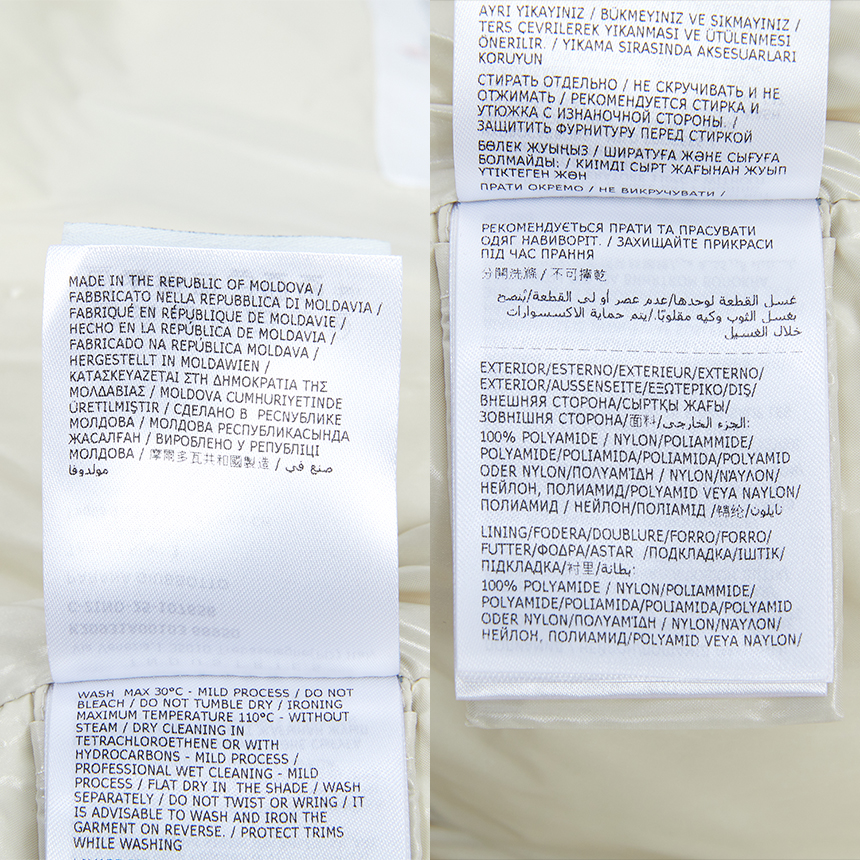 MADE IN THE REPUBLIC OF MOLDOVA /
FABBRICATO NELLA REPUBBLICA DI MOLDAVIA /
FABRIQUÉ EN RÉPUBLIQUE DE MOLDAVIE /
HECHO EN LA REPÚBLICA DE MOLDAVIA /
FABRICADO NA REPÚBLICA MOLDAVA /
HERGESTELLT IN MOLDAWIEN /
ΚΑΤΑΣΚΕΥΑΖΕΤΑΙ ΣΤΗ ΔΗΜΟΚΡΑΤΙΑ ΤΗΣ
ΜΟΛΔΑΒΙΑΣ / MOLDOVA CUMHURIYETINDE
ÜRETILMIŞTIR / СДЕЛАНО В РЕСПУБЛИКЕ
МОЛДОВА / МОЛДОВА РЕСПУБЛИКАСЫНДА
ЖАСАЛҒАН / ВИРОБЛЕНО У РЕПУБЛІЦІ
МОЛДОВА / 摩爾多瓦共和國製造 / صنع في
مولدوفا
WASH MAX 30°C - MILD PROCESS / DO NOT
BLEACH / DO NOT TUMBLE DRY / IRONING
MAXIMUM TEMPERATURE 110°C - WITHOUT
STEAM / DRY CLEANING IN
TETRACHLOROETHENE OR WITH
HYDROCARBONS - MILD PROCESS /
PROFESSIONAL WET CLEANING - MILD
PROCESS / FLAT DRY IN THE SHADE / WASH
SEPARATELY / DO NOT TWIST OR WRING / IT
IS ADVISABLE TO WASH AND IRON THE
GARMENT ON REVERSE. / PROTECT TRIMS
WHILE WASHING
AYRI YIKAYINIZ / BÜKMEYINIZ VE SIKMAYINIZ /
TERS ÇEVRILEREK YIKANMASI VE ÜTÜLENMESI
ÖNERILIR. / YIKAMA SIRASINDA AKSESUARLARI
KORUYUN
СТИРАТЬ ОТДЕЛЬНО / НЕ СКРУЧИВАТЬ И НЕ
ОТЖИМАТЬ / РЕКОМЕНДУЕТСЯ СТИРКА И
УТЮЖКА С ИЗНАНОЧНОЙ СТОРОНЫ. /
ЗАЩИТИТЬ ФУРНИТУРУ ПЕРЕД СТИРКОЙ
БӨЛЕК ЖУЫҢЫЗ / ШИРАТУҒА ЖӘНЕ СЫҒУҒА
БОЛМАЙДЫ: / КИІМДІ СЫРТ ЖАҒЫНАН ЖУЫП
ҮТІКТЕГЕН ЖӨН
ПРАТИ ОКРЕМО / НЕ ВИКРУЧУВАТИ /
РЕКОМЕНДУЄТЬСЯ ПРАТИ ТА ПРАСУВАТИ
ОДЯГ НАВИВОРІТ. / ЗАХИЩАЙТЕ ПРИКРАСИ
ПІД ЧАС ПРАННЯ
分開洗滌 / 不可擰乾
غسل القطعة لوحدها/عدم عصر أو لى القطعة/يُنصح
بغسل الثوب وكيه مقلوبًا./يتم حماية الاكسسوارات
خلال الغسيل
EXTERIOR/ESTERNO/EXTERIEUR/EXTERNO/
EXTERIOR/AUSSENSEITE/ΕΞΩΤΕΡΙΚΟ/DIŞ/
ВНЕШНЯЯ СТОРОНА/СЫРТҚЫ ЖАҒЫ/
ЗОВНІШНЯ СТОРОНА/面料/الجزء الخارجي:
100% POLYAMIDE / NYLON/POLIAMMIDE/
POLYAMIDE/POLIAMIDA/POLIAMIDA/POLYAMID
ODER NYLON/ΠΟΛΥΑΜΊΔΗ / NYLON/ΝΑΥΛΟΝ/
НЕЙЛОН, ПОЛИАМИД/POLYAMID VEYA NAYLON/
ПОЛИАМИД / НЕЙЛОН/ПОЛІАМІД /锦纶/نايلون/
LINING/FODERA/DOUBLURE/FORRO/FORRO/
FUTTER/ΦΟΔΡΑ/ASTAR /ПОДКЛАДКА/ІШТІК/
ПІДКЛАДКА/衬里/بطانة:
100% POLYAMIDE / NYLON/POLIAMMIDE/
POLYAMIDE/POLIAMIDA/POLIAMIDA/POLYAMID
ODER NYLON/ΠΟΛΥΑΜΊΔΗ / NYLON/ΝΑΥΛΟΝ/
НЕЙЛОН, ПОЛИАМИД/POLYAMID VEYA NAYLON/